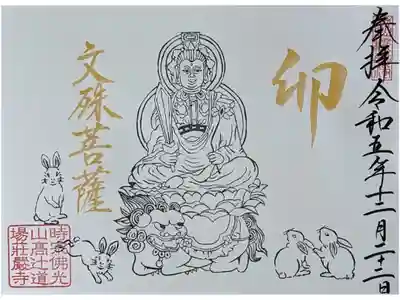 奉拝 令和五年十二月二十二日
卯
文殊菩薩
時宗佛光
山高辻道
場莊嚴寺